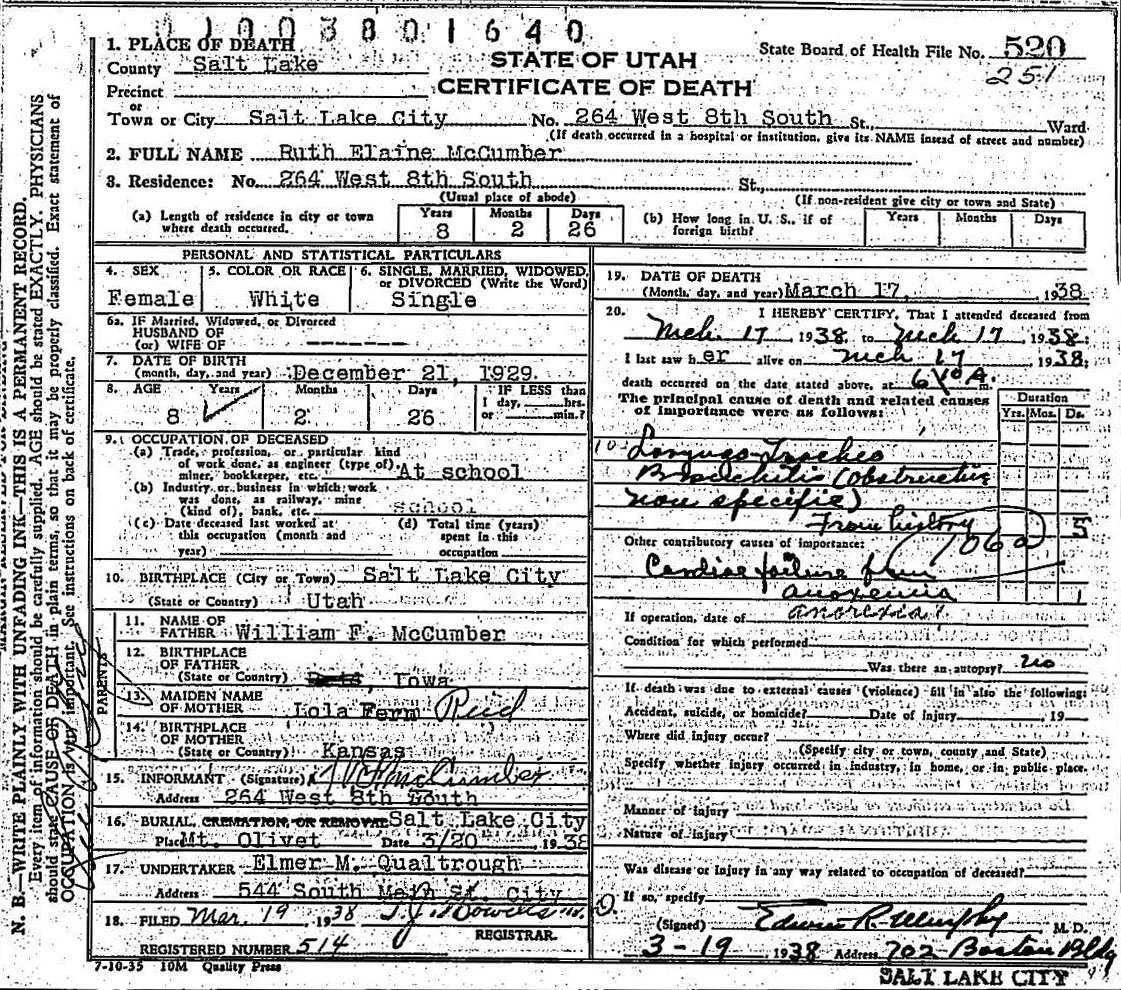 01003801640
STATE OF UTAH
CERTIFICATE OF DEATH
State Board of Health File No. 520
251
1. PLACE OF DEATH
County Salt Lake
Precinct
or
Town or City Salt Lake City No. 264 West 8th South St., Ward
(If death occurred in a hospital or institution, give its NAME insead of street and number)
2. FULL NAME Ruth Elaine McCumber
3. Residence: No. 264 West 8th South St.,
(Usual place of abode) (If non-resident give city or town and State)
(a) Length of residence in city or town where death occurred. Years 8 Months 2 Days 26
(b) How long in U. S., if of foreign birth? Years Months Days
PERSONAL AND STATISTICAL PARTICULARS
4. SEX Female
5. COLOR OR RACE White
6. SINGLE, MARRIED, WIDOWED, or DIVORCED (Write the Word) Single
6a. IF Married, Widowed, or Divorced
HUSBAND OF
(or) WIFE OF
7. DATE OF BIRTH
(month, day, and year) December 21, 1929.
8. AGE Years 8 Months 2 Days 26 IF LESS than 1 day, hrs. or min.?
9. OCCUPATION OF DECEASED
(a) Trade, profession, or particular kind
of work done, as engineer (type of)
miner, bookkeeper, etc. At school
(b) Industry or business in which work
was done, as railway, mine
(kind of), bank, etc. school
(c) Date deceased last worked at
this occupation (month and
year)
(d) Total time (years)
spent in this
occupation
10. BIRTHPLACE (City or Town) Salt Lake City
(State or Country) Utah
PARENTS
11. NAME OF
FATHER William F. McCumber
12. BIRTHPLACE
OF FATHER
(State or Country) Iowa
13. MAIDEN NAME
OF MOTHER Lola Fern Reid
14. BIRTHPLACE
OF MOTHER
(State or Country) Kansas
15. INFORMANT (Signature) McCumber
Address 264 West 8th South
16. BURIAL, CREMATION, OR REMOVAL Salt Lake City
Place Mt. Olivet Date 3/20 1938
17. UNDERTAKER Elmer M. Qualtrough
Address 544 South Main St. City
18. FILED Mar. 19 1938
REGISTRAR.
REGISTERED NUMBER 514
7-10-35 10M Quality Press
19. DATE OF DEATH
(Month, day, and year) March 17, 1938
20. I HEREBY CERTIFY, That I attended deceased from
Mch. 17, 1938 to Mch 17 1938:
I last saw her alive on Mch 17 1938:
death occurred on the date stated above, at A. m.
The principal cause of death and related causes
of importance were as follows:
Duration
Yrs. Mos. Ds.
Laryngo-Tracheo
Bronchitis (obstructive
non specific)
From history 5
Other contributory causes of importance: 106a
Cardiac failure from
anoxemia 1
anorexia?
If operation, date of
Condition for which performed
Was there an autopsy? no
If death was due to external causes (violence) fill in also the following:
Accident, suicide, or homicide? Date of Injury 19
Where did injury occur?
(Specify city or town, county and State)
Specify whether injury occurred in industry, in home, or in public place.
Manner of injury
Nature of injury
Was disease or injury in any way related to occupation of deceased?
If so, specify
(Signed) Edwin R. Murphy M. D.
3-19 1938 Address 702 Boston Bldg
SALT LAKE CITY
N. B.—WRITE PLAINLY WITH UNFADING INK—THIS IS A PERMANENT RECORD.
Every item of information should be carefully supplied. AGE should be stated EXACTLY. PHYSICIANS
should state CAUSE OF DEATH in plain terms, so that it may be properly classified. Exact statement of
OCCUPATION is very important. See instructions on back of certificate.